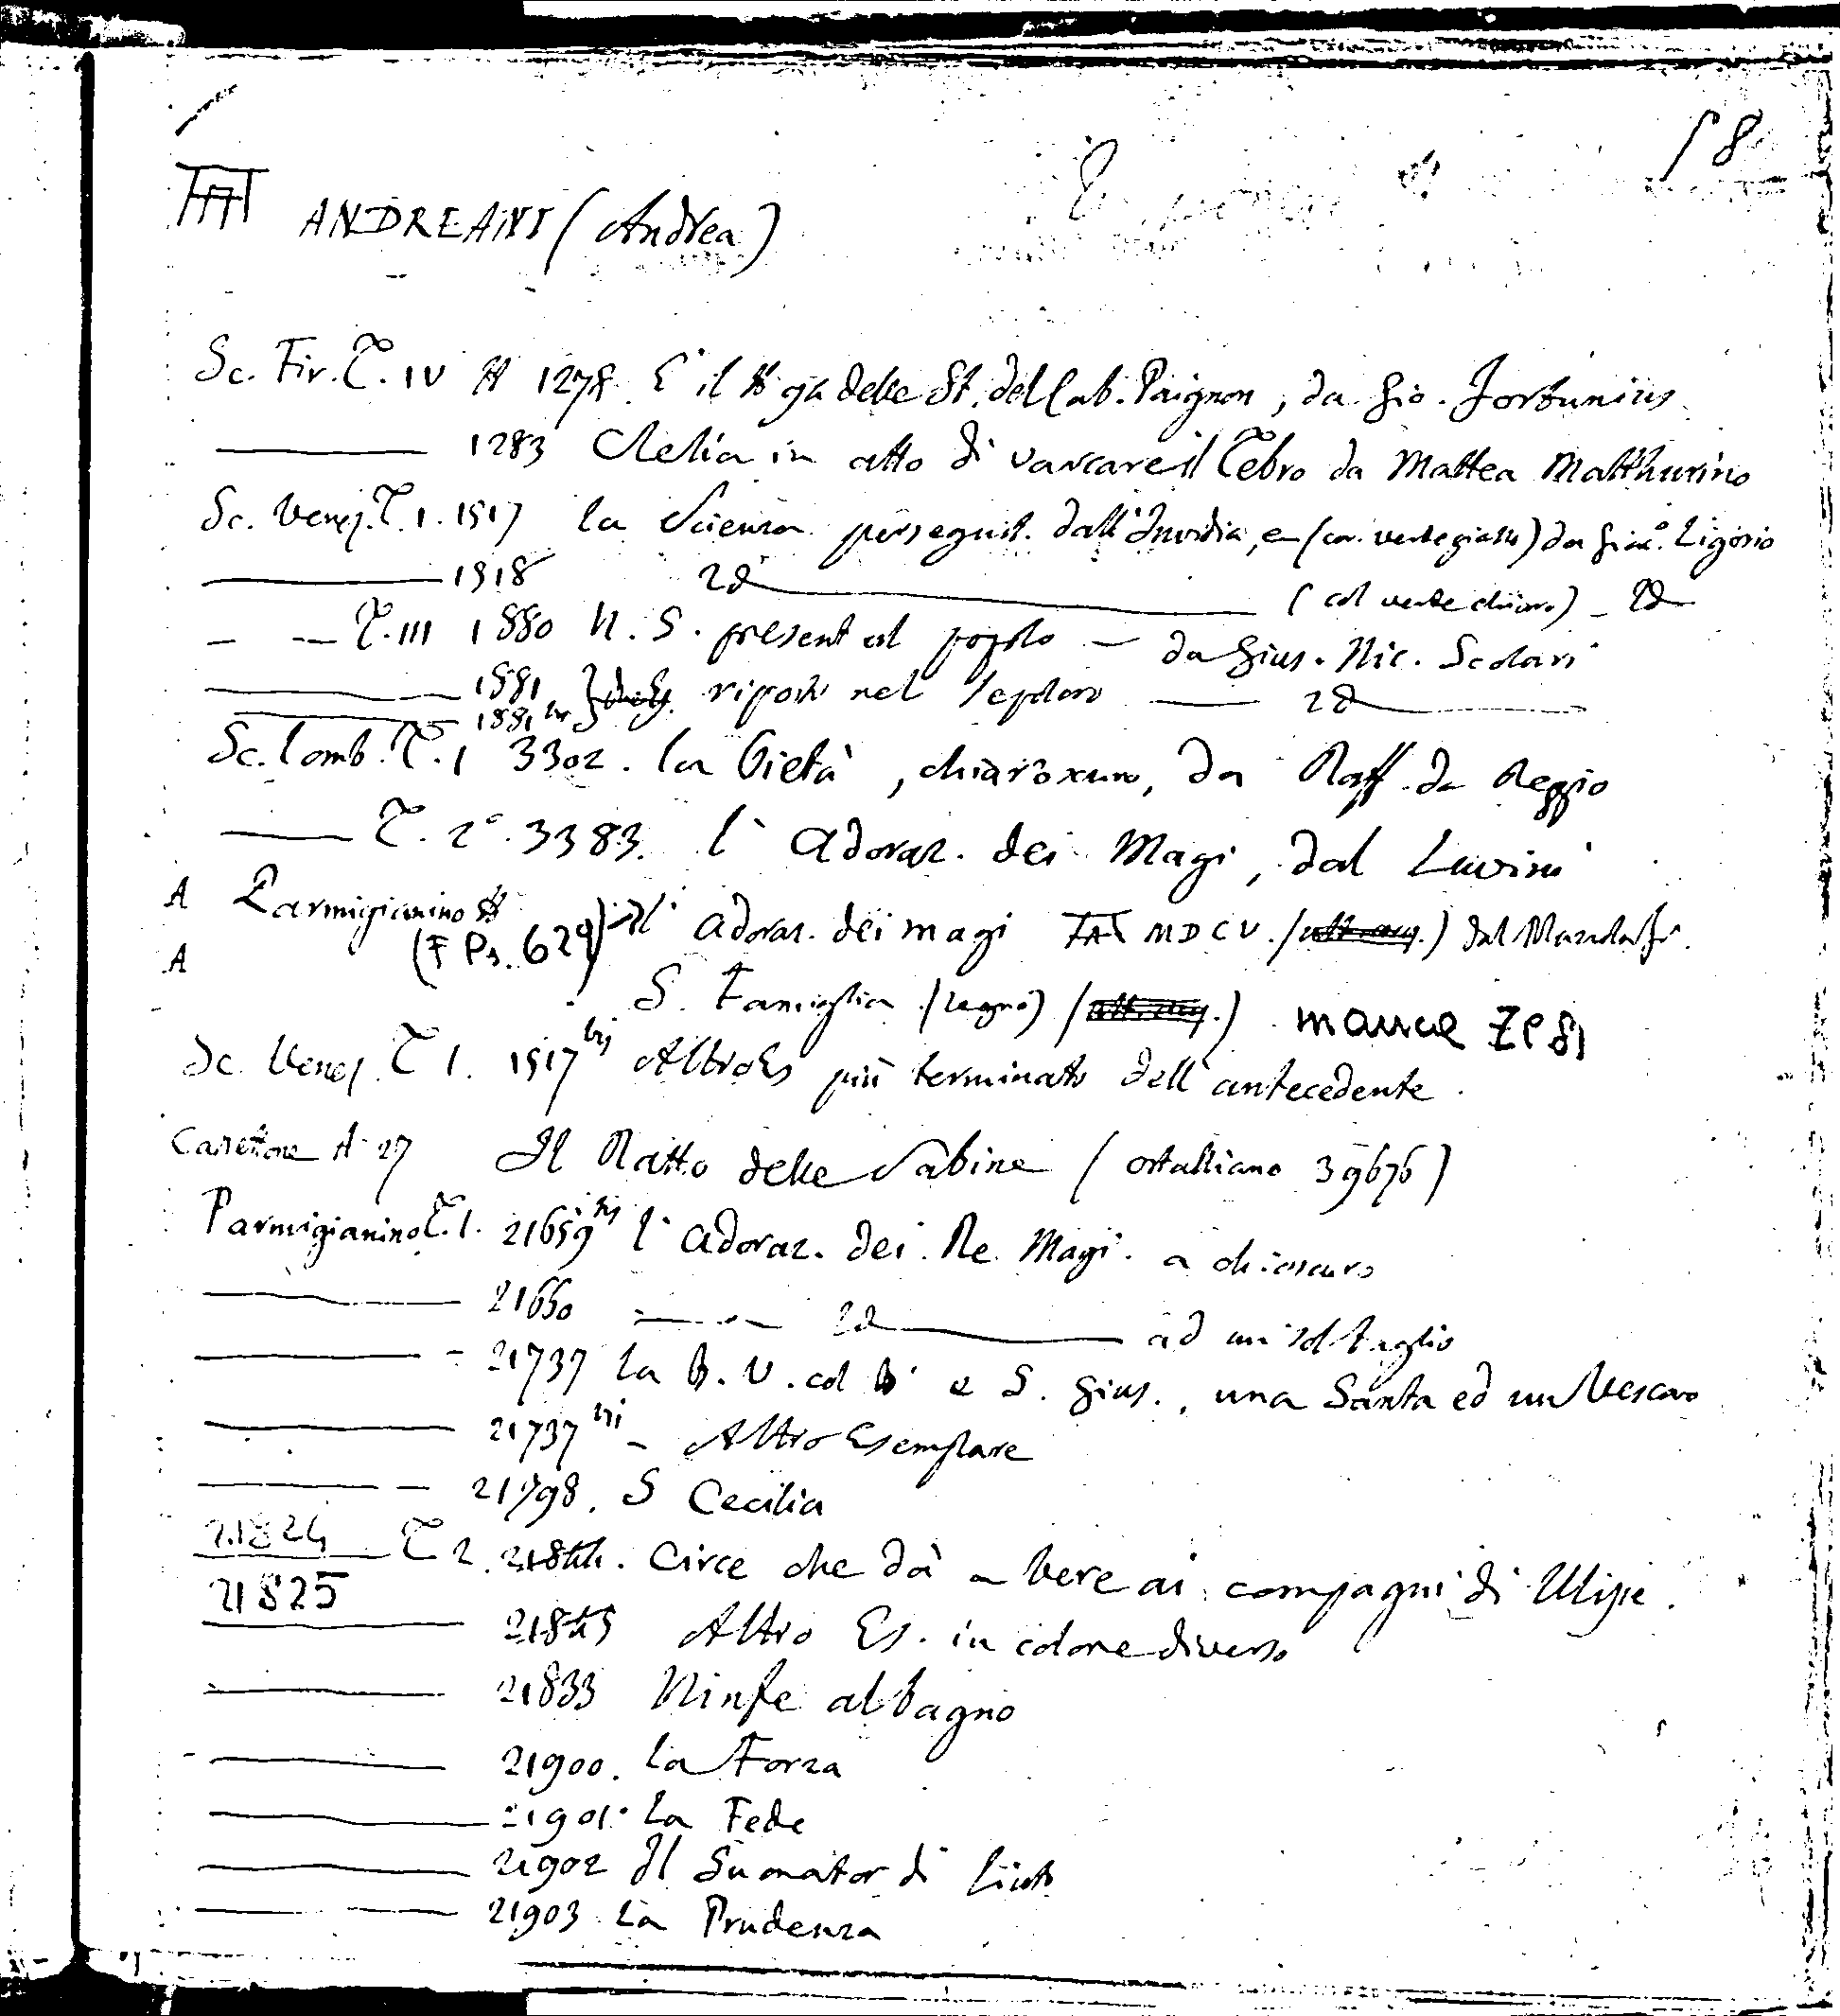 58
ANDREANI (Andrea)
Sc. Fir. T. IV N 1278. È il N 92 delle St. del Cab. Paignon, da Gio. Fortunius
1283 Clelia in atto di varcare il Tebro da Mattea Matthurino
Sc. Venez. T. 1. 1517 la Scienza perseguit. dall'Invidia, (col. verde giallo) da Giac.º Ligozio
1518 Id (col verde chiaro) - Id
T. III 1880 N. S. present al popolo - da Gius. Nic. Scolari
1881
1881 bis riposto nel sepolcro Id
Sc. Lomb. T. 1 3302. La Pietà, chiaroscuro, da Raff. da Reggio
T. 2º. 3383. l'Adoraz. dei Magi, dal Luvini
A Parmigianino
A (F Ps. 629) l'Adoraz. dei magi MDCV.
S. Famiglia (legno) manca
Sc. Venez. T 1. 1517 bis Altro Es più terminato dell'antecedente.
Cassettone A 27 Il Ratto delle Sabine (ortalliano 39676)
Parmigianino T. 1. 21659 bis l'Adoraz. dei Re Magi. a chiaroscuro
21660 Id ad un sol taglio
21737 la B. V. col B. e S. Gius., una Santa ed un Vescovo
21737 bis - Altro Esemplare
21798. S Cecilia
21824 T 2. Circe che dà a bere ai compagni di Ulisse.
21825 Altro Es. in colore diverso
21833 Ninfe al bagno
21900. La Forza
21901. La Fede
21902 Il Suonator di Liuto
21903 La Prudenza